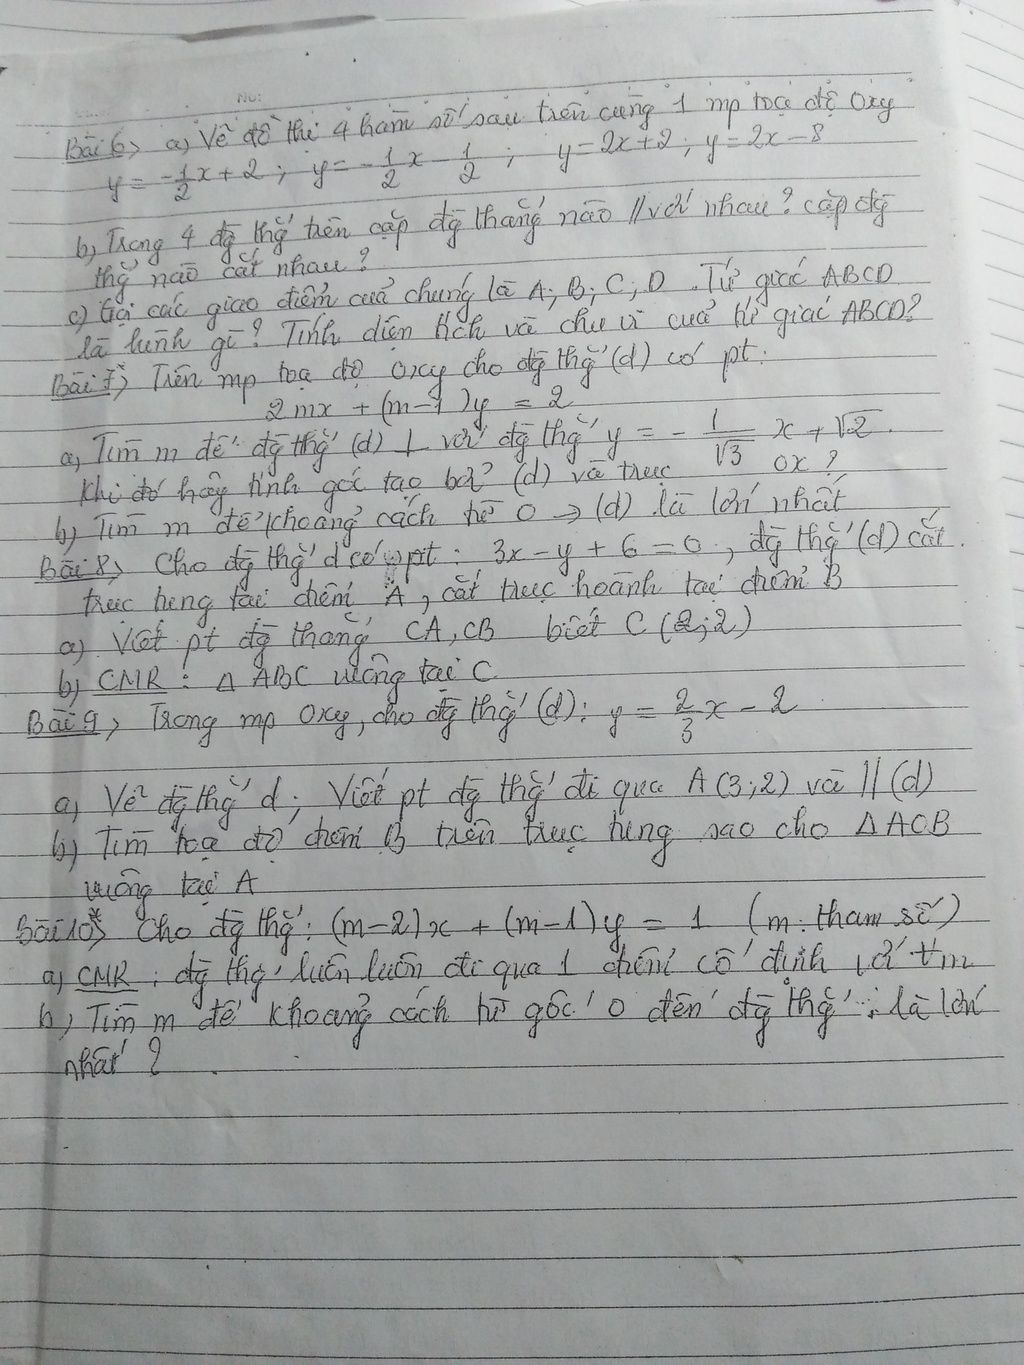 No:
Bài 6, a) Vẽ đồ thị 4 hàm số sau trên cùng 1 mp toạ độ Oxy
y = -1/2 x + 2 ; y = -1/2 x - 1/2 ; y = 2x + 2 ; y = 2x - 8
b, Trong 4 đg thg trên cặp đg thẳng nào // với nhau? cặp đg
thg nào cắt nhau?
c) Gọi các giao điểm của chúng là A; B; C; D. Tứ giác ABCD
là hình gì? Tính diện tích và chu vi của tứ giác ABCD?
Bài 7*, Trên mp toạ độ Oxy cho đg thg (d) có pt:
2mx + (m-1)y = 2
a, Tìm m để đg thg (d) ⊥ với đg thg y = -1/√3 x + √2.
Khi đó hãy tính góc tạo bởi (d) và trục Ox?
b, Tìm m để khoảng cách từ O → (d) là lớn nhất
Bài 8, Cho đg thg d có pt: 3x - y + 6 = 0, đg thg (d) cắt
trục tung tại điểm A, cắt trục hoành tại điểm B
a) Viết pt đg thẳng CA, CB biết C (2;2)
b) CMR: Δ ABC vuông tại C
Bài 9, Trong mp Oxy, cho đg thg (d): y = 2/3 x - 2
a, Vẽ đg thg d; Viết pt đg thg đi qua A(3;2) và // (d)
b, Tìm toạ độ điểm B trên trục tung sao cho ΔAOB
vuông tại A
Bài 10*, Cho đg thg: (m-2)x + (m-1)y = 1 (m: tham số)
a) CMR: đg thg luôn luôn đi qua 1 điểm cố định với ∀m
b, Tìm m để khoảng cách từ gốc O đến đg thg là lớn
nhất?